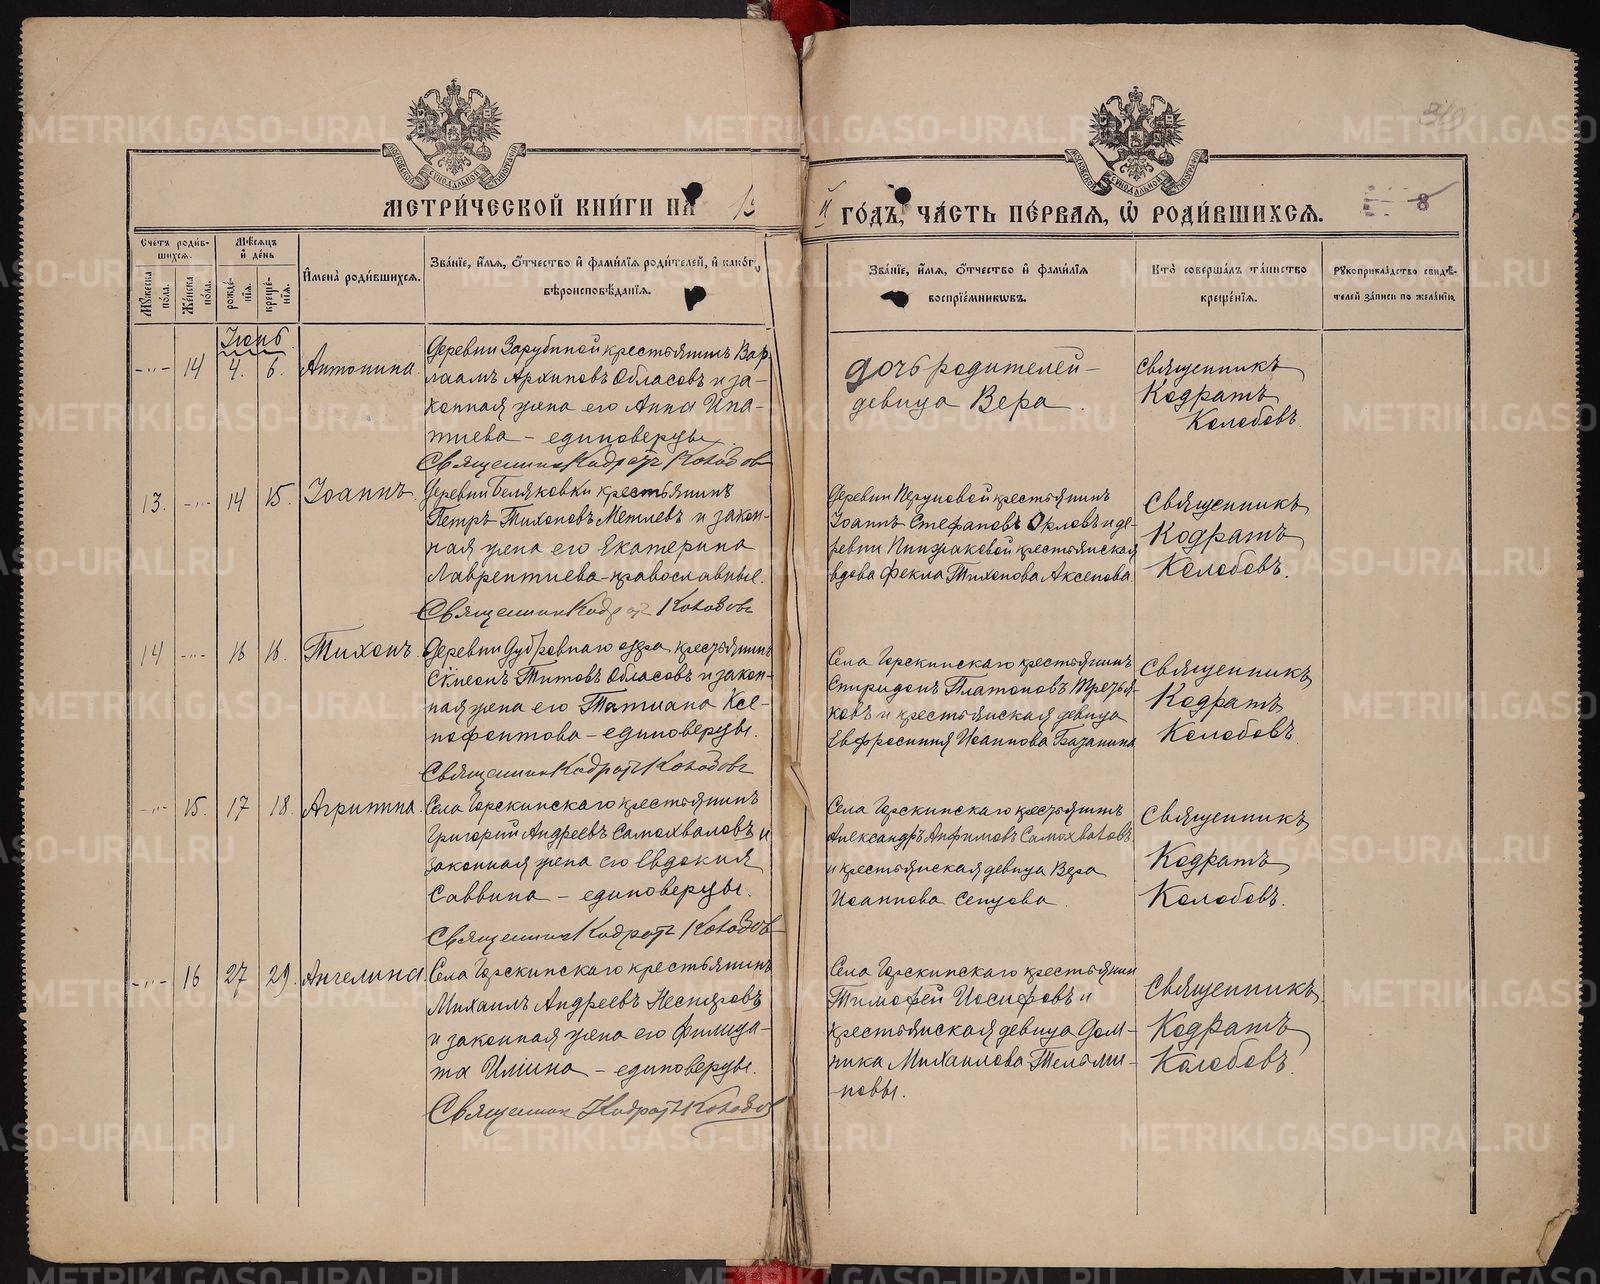 МЕТРИ́ЧЕСКОЙ КНИ́ГИ НА
ГО́ДЪ, ЧА́СТЬ ПЕ́РВАЯ, Ѡ҆ РОДИ́ВШИХСЯ.
8
Сче́тъ роди́в-
шихся.
Мѣ́сяцъ
и҆ де́нь
И҆мена̀ роди́вшихся.
Зва́нїе, и҆́мя, ѻ҆́тчество и҆ фами́лїя роди́телей, и҆ како́гѡ
вѣроисповѣ́данїя.
Зва́нїе, и҆́мя, ѻ҆́тчество и҆ фами́лїя
воспрїе́мникѡвъ.
Кто̀ соверша́лъ та́инство
креще́нїя.
Рꙋкоприкла́дство свидѣ́-
телей за́писи по жела́нїю.
Мꙋ́жеска
по́ла.
Же́нска
по́ла.
рожде́-
нїя.
креще́-
нїя.
Іюнь.
-"- 14 4. 6. Антонина.
Деревни Зарубиной крестьянинъ Вар-
лаамъ Архиповъ Обласовъ и за-
конная жена его Анна Ипа-
тиева – единоверцы.
Священник Кодратъ Колобовъ
Дочь родителей –
девица Вера.
Священникъ
Кодратъ
Колобовъ.
13. -"- 14 15. Іоаннъ.
Деревни Беляковки крестьянинъ
Петръ Тихоновъ Метлевъ и закон-
ная жена его Екатерина
Лаврентиева – православные.
Священник Кодратъ Колобовъ
Деревни Перуновой крестьянинъ
Іоаннъ Стефановъ Орловъ и де-
ревни крестьянская
вдова Фекла Тихонова Аксенова
Священникъ
Кодратъ
Колобовъ.
14 -"- 16 18. Тихонъ.
Деревни Дубровнаго озера крестьянинъ
Титовъ Обласовъ и закон-
ная жена его Татиана Ксе-
нофонтова – единоверцы.
Священник Кодратъ Колобовъ
Села Горскинскаго крестьянинъ
Спиридонъ Платоновъ Третья-
ковъ и крестьянская девица
Евфросиния Иоаннова Базанина
Священникъ
Кодратъ
Колобовъ.
-"- 15. 17 18. Агрипина.
Села Горскинскаго крестьянинъ
Григорий Андреевъ Самохваловъ и
законная жена его Евдокия
Саввина – единоверцы.
Священник Кодратъ Колобовъ
Села Горскинскаго крестьянинъ
Александръ Анфимовъ Самохваловъ
и крестьянская девица Вера
Иоаннова Сенцова.
Священникъ
Кодратъ
Колобовъ.
-"- 16 27 29. Ангелина.
Села Горскинскаго крестьянинъ
Михаилъ Андреевъ
и законная жена его Филица-
та Ильина – единоверцы.
Священник Кодратъ Колобовъ
Села Горскинскаго крестьянин
Тимофей Иосифовъ и
крестьянская девица Дом-
ника Михаилова Тельми-
новы.
Священникъ
Кодратъ
Колобовъ.
METRIKI.GASO-URAL.RU